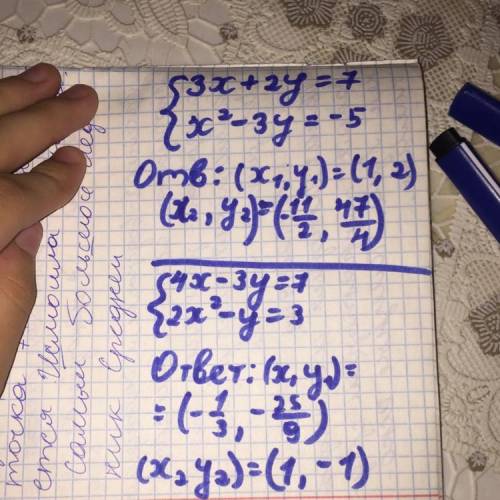 {3x+2y=7
{x²-3y=-5
Отв: (x₁,y₁)=(1,2)
(x₂,y₂)=(-11/2, 47/4)
{4x-3y=7
{2x²-y=3
Ответ: (x,y₁)=
=(-1/3, -25/9)
(x₂y₂)=(1,-1)
точка
ется
самый большое
ник средней